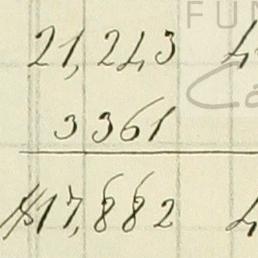 FUN
21,243 4
Ca
3361
$17,882 4